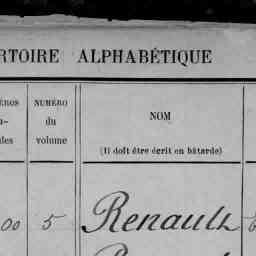 RTOIRE ALPHABÉTIQUE
ÉROS
NUMÉRO
du
volume
NOM
(Il doit être écrit en bâtarde)
00 5 Renault